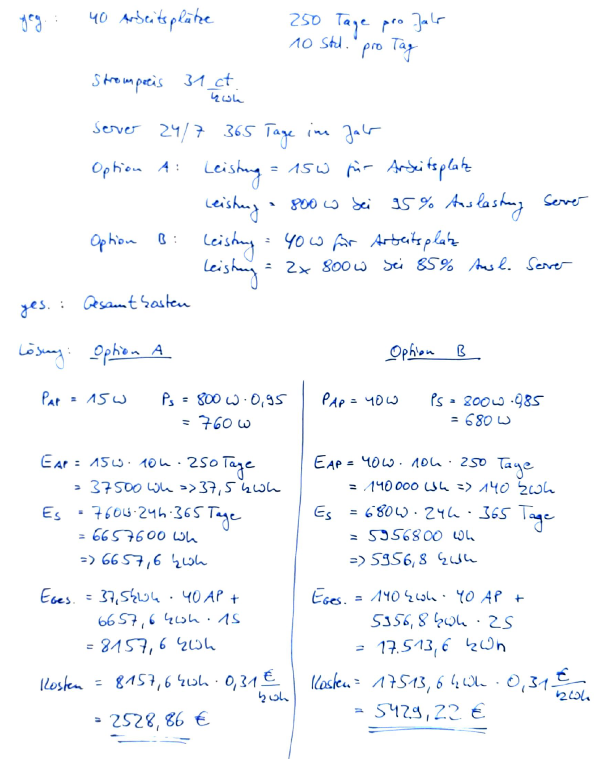 geg.: 40 Arbeitsplätze 250 Tage pro Jahr
10 Std. pro Tag
Strompreis 31 ct/kWh
Server 24/7 365 Tage im Jahr
Option A: Leistung = 15W für Arbeitsplatz
Leistung = 800W bei 95% Auslastung Server
Option B: Leistung = 40W für Arbeitsplatz
Leistung = 2x 800W bei 85% Ausl. Server
ges.: Gesamtkosten
Lösung: Option A
P_AP = 15W P_S = 800W · 0,95
= 760W
E_AP = 15W · 10h · 250 Tage
= 37500 Wh => 37,5 kWh
E_S = 760W · 24h · 365 Tage
= 6657600 Wh
=> 6657,6 kWh
E_Ges. = 37,5kWh · 40 AP +
6657,6 kWh · 1S
= 8157,6 kWh
Kosten = 8157,6 kWh · 0,31 €/kWh
= 2528,86 €
Option B
P_AP = 40W P_S = 800W · 0,85
= 680W
E_AP = 40W · 10h · 250 Tage
= 140000 Wh => 140 kWh
E_S = 680W · 24h · 365 Tage
= 5956800 Wh
=> 5956,8 kWh
E_Ges. = 140kWh · 40 AP +
5956,8 kWh · 2S
= 17.513,6 kWh
Kosten = 17513,6 kWh · 0,31 €/kWh
= 5429,22 €